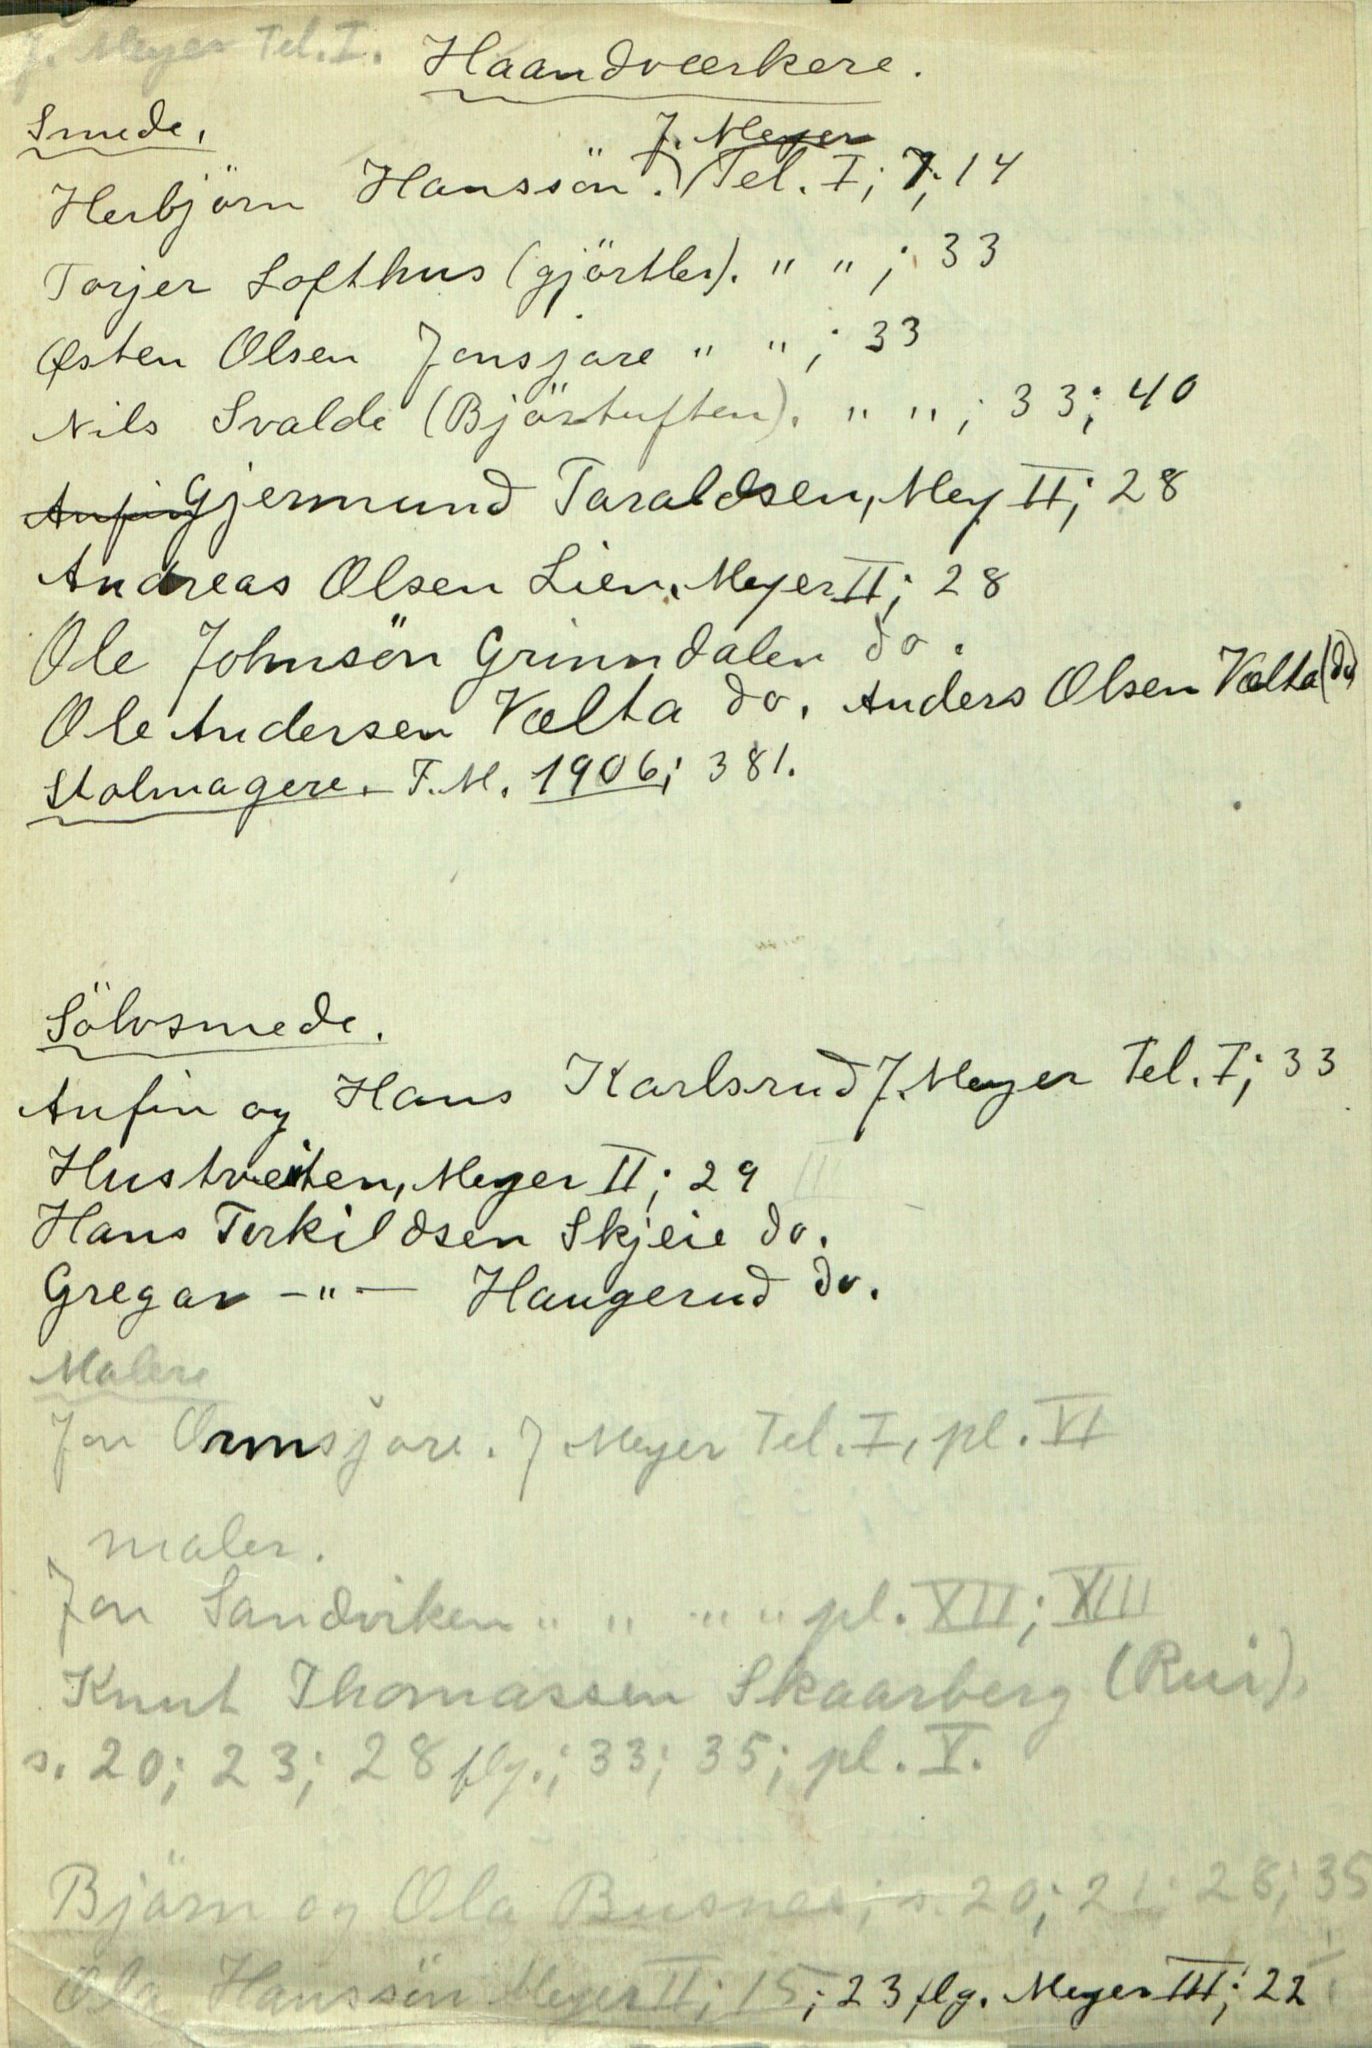 J. Meyer Tel. I.
Haandværkere.
Smede.
J. Meyer
Herbjörn Hanssön. Tel. I; 7; 14
Torjer Lofthus (gjörtler). " " ; 33
Østen Olsen Jonsjore " " ; 33
Nils Svalde (Björtuften). " " ; 33; 40
Anfin Gjermund Taraldsen, Mey II; 28
Andreas Olsen Lien. Meyer II; 28
Ole Johnsön Grinndalen do.
Ole Andersen Vælta do. Anders Olsen Vælta (do)
Stolmagere. T.M. 1906; 381.
Sölvsmede.
Anfin og Hans Karlsrud J. Meyer Tel. I; 33
Hustveiten, Meyer II; 29 II
Hans Torkildsen Skjeie do.
Gregar -"- Haugerud do.
Malere
Jon Ormsjore. J Meyer Tel. I, pl. VI
maler.
Jon Sandviken " " " " pl. XII; XIII
Knut Thomassen Skaarberg (Rui).
s. 20; 23; 28 flg.; 33; 35; pl. V.
Björn og Ola Busnes; s. 20; 21; 28; 35
Ola Hanssön Meyer II; 15; 23 flg. Meyer III; 22